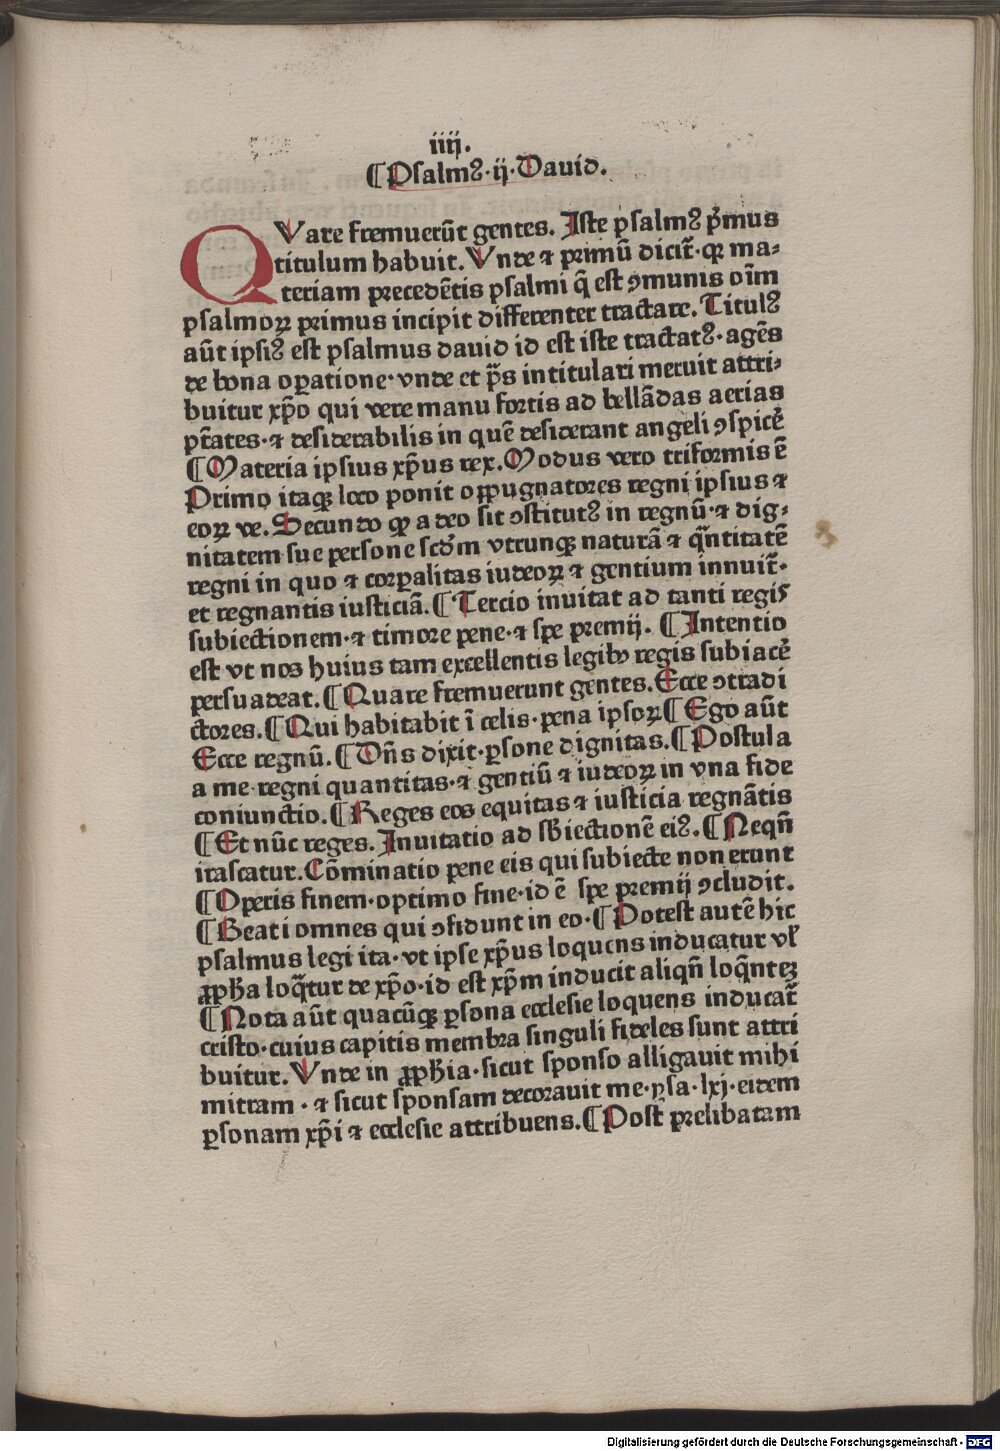 iiij.
¶Psalmꝰ·ij·Dauid.
QVare fremuerūt gentes. Iste psalmꝰ p̓mus
titulum habuit. Vnde ⁊ primū dicit᷑·qꝛ ma⸗
teriam precedētis psalmi q̄ est ꝯmunis oīm
psalmoꝝ primus incipit differenter tractare. Titulꝰ
aūt ipsiꝰ est psalmus dauid id est iste tractatꝰ·agēs
de bona oꝑatione·vnde et p̄s intitulari meruit attri⸗
buitur xp̄o qui vere manu fortis ad bellādas aerias
ptates·⁊ desiderabilis in quē desiderant angeli ꝯspice᷑
¶Materia ipsius xp̄us rex. Modus vero triformis ē
Primo itaqꝫ loco ponit oppugnatores regni ipsius ⁊
eoꝝ ve. Secundo qꝙ adeo sit ꝯstitutꝰ in regnū·⁊ dig⸗
nitatem sue persone scd̄m vtrunqꝫ naturā ⁊ q̄ntitatē
regni in quo ⁊ corꝑalitas iudeoꝝ ⁊ gentium innuit᷑·
et regnantis iusticiā.¶Tercio inuitat ad tanti regis
subiectionem·⁊ timore pene·⁊ spe premij. ¶Intentio
est vt nos huius tam excellentis legibꝰ regis subiace᷑
persuadeat.¶Quare fremuerunt gentes. Ecce ꝯtradi
ctores.¶Qui habitabit ī celis·pena ipsoꝝ¶Ego aūt
Ecce regnū.¶Dn̄s dixit·ꝑsone dignitas.¶Postula
a me·regni quantitas·⁊ gentiū ⁊ iudeoꝝ in vna fide
coniunctio.¶Reges eos equitas ⁊ iusticia regnātis
¶Et nūc reges. Inuitatio ad sb̄iectionē eiꝰ.¶Neqn̄
irascatur. Cōminatio pene eis qui subiecte non erunt
¶Operis finem·optimo fine·id ē spe premij ꝯcludit.
¶Beati omnes qui ꝯfidunt in eo·¶Potest autē hic
psalmus legi ita·vt ipse xp̄us loquens inducatur vl̓
ꝓpħa loq̄tur de xp̄o·id est xp̄m inducit aliqn̄ loq̄nteꝫ
¶Nota aūt quacūqꝫ ꝑsona ecclesie loquens inducat᷑
cristo·cuius capitis membra singuli fideles sunt attri
buitur. Vnde in ꝓpħia·sicut sponso alligauit mihi
mitram·⁊ sicut sponsam decorauit me·ysa·lxj·eidem
ꝑsonam xp̄i ⁊ ecclesie attribuens.¶Post prelibatam
Digitalisierung gefördert durch die Deutsche Forschungsgemeinschaft - DFG